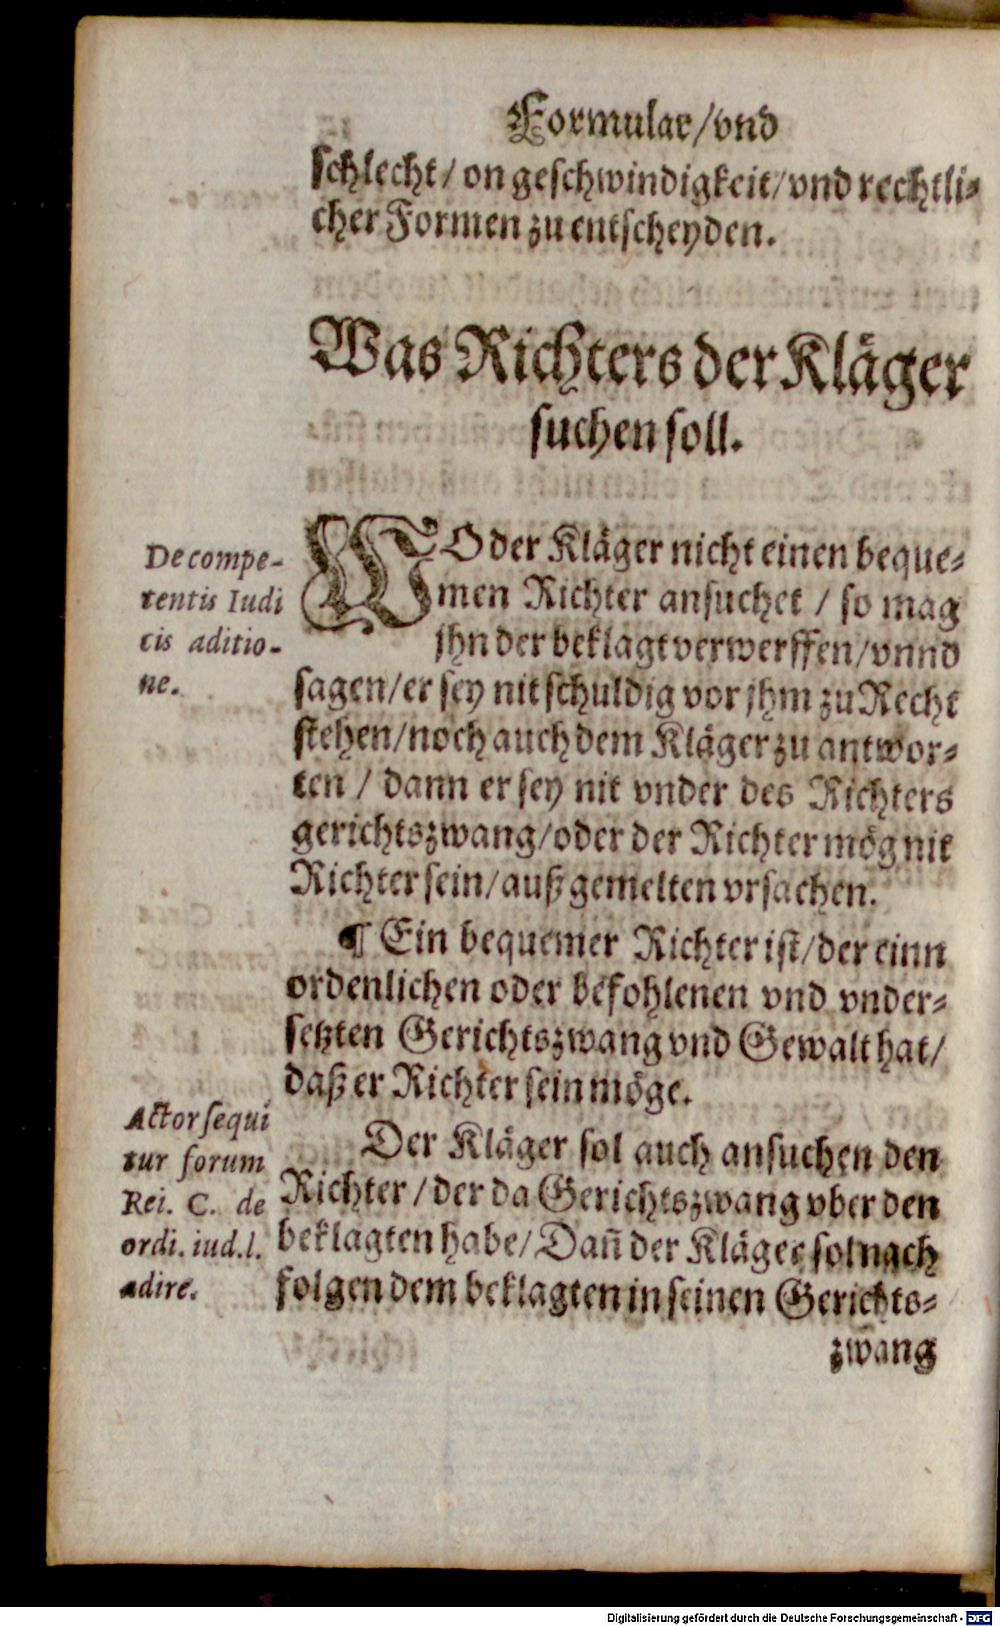 Formular/vnd
schlecht/ on geschwindigkeit/vnd rechtli-
cher Formen zu entscheyden.
Was Richters der Kläger
suchen soll.
De compe-
tentis Iudi
cis aditio-
ne.
WO der Kläger nicht einen beque-
men Richter ansuchet / so mag
jhn der beklagt verwerffen/vnnd
sagen/er sey nit schuldig vor jhm zu Recht
stehen/noch auch dem Kläger zu antwor-
ten / dann er sey nit vnder des Richters
gerichtszwang/oder der Richter mög nit
Richter sein/auß gemelten vrsachen.
¶ Ein bequemer Richter ist/der einn
ordenlichen oder befohlenen vnd vnder-
setzten Gerichtszwang vnd Gewalt hat/
daß er Richter sein möge.
Actor sequi
tur forum
Rei. C. de
ordi. iud. l.
adire.
Der Kläger sol auch ansuchen den
Richter / der da Gerichtszwang vber den
beklagten habe/Dañ der Kläger sol nach
folgen dem beklagten in seinen Gerichts-
zwang
Digitalisierung gefördert durch die Deutsche Forschungsgemeinschaft - DFG